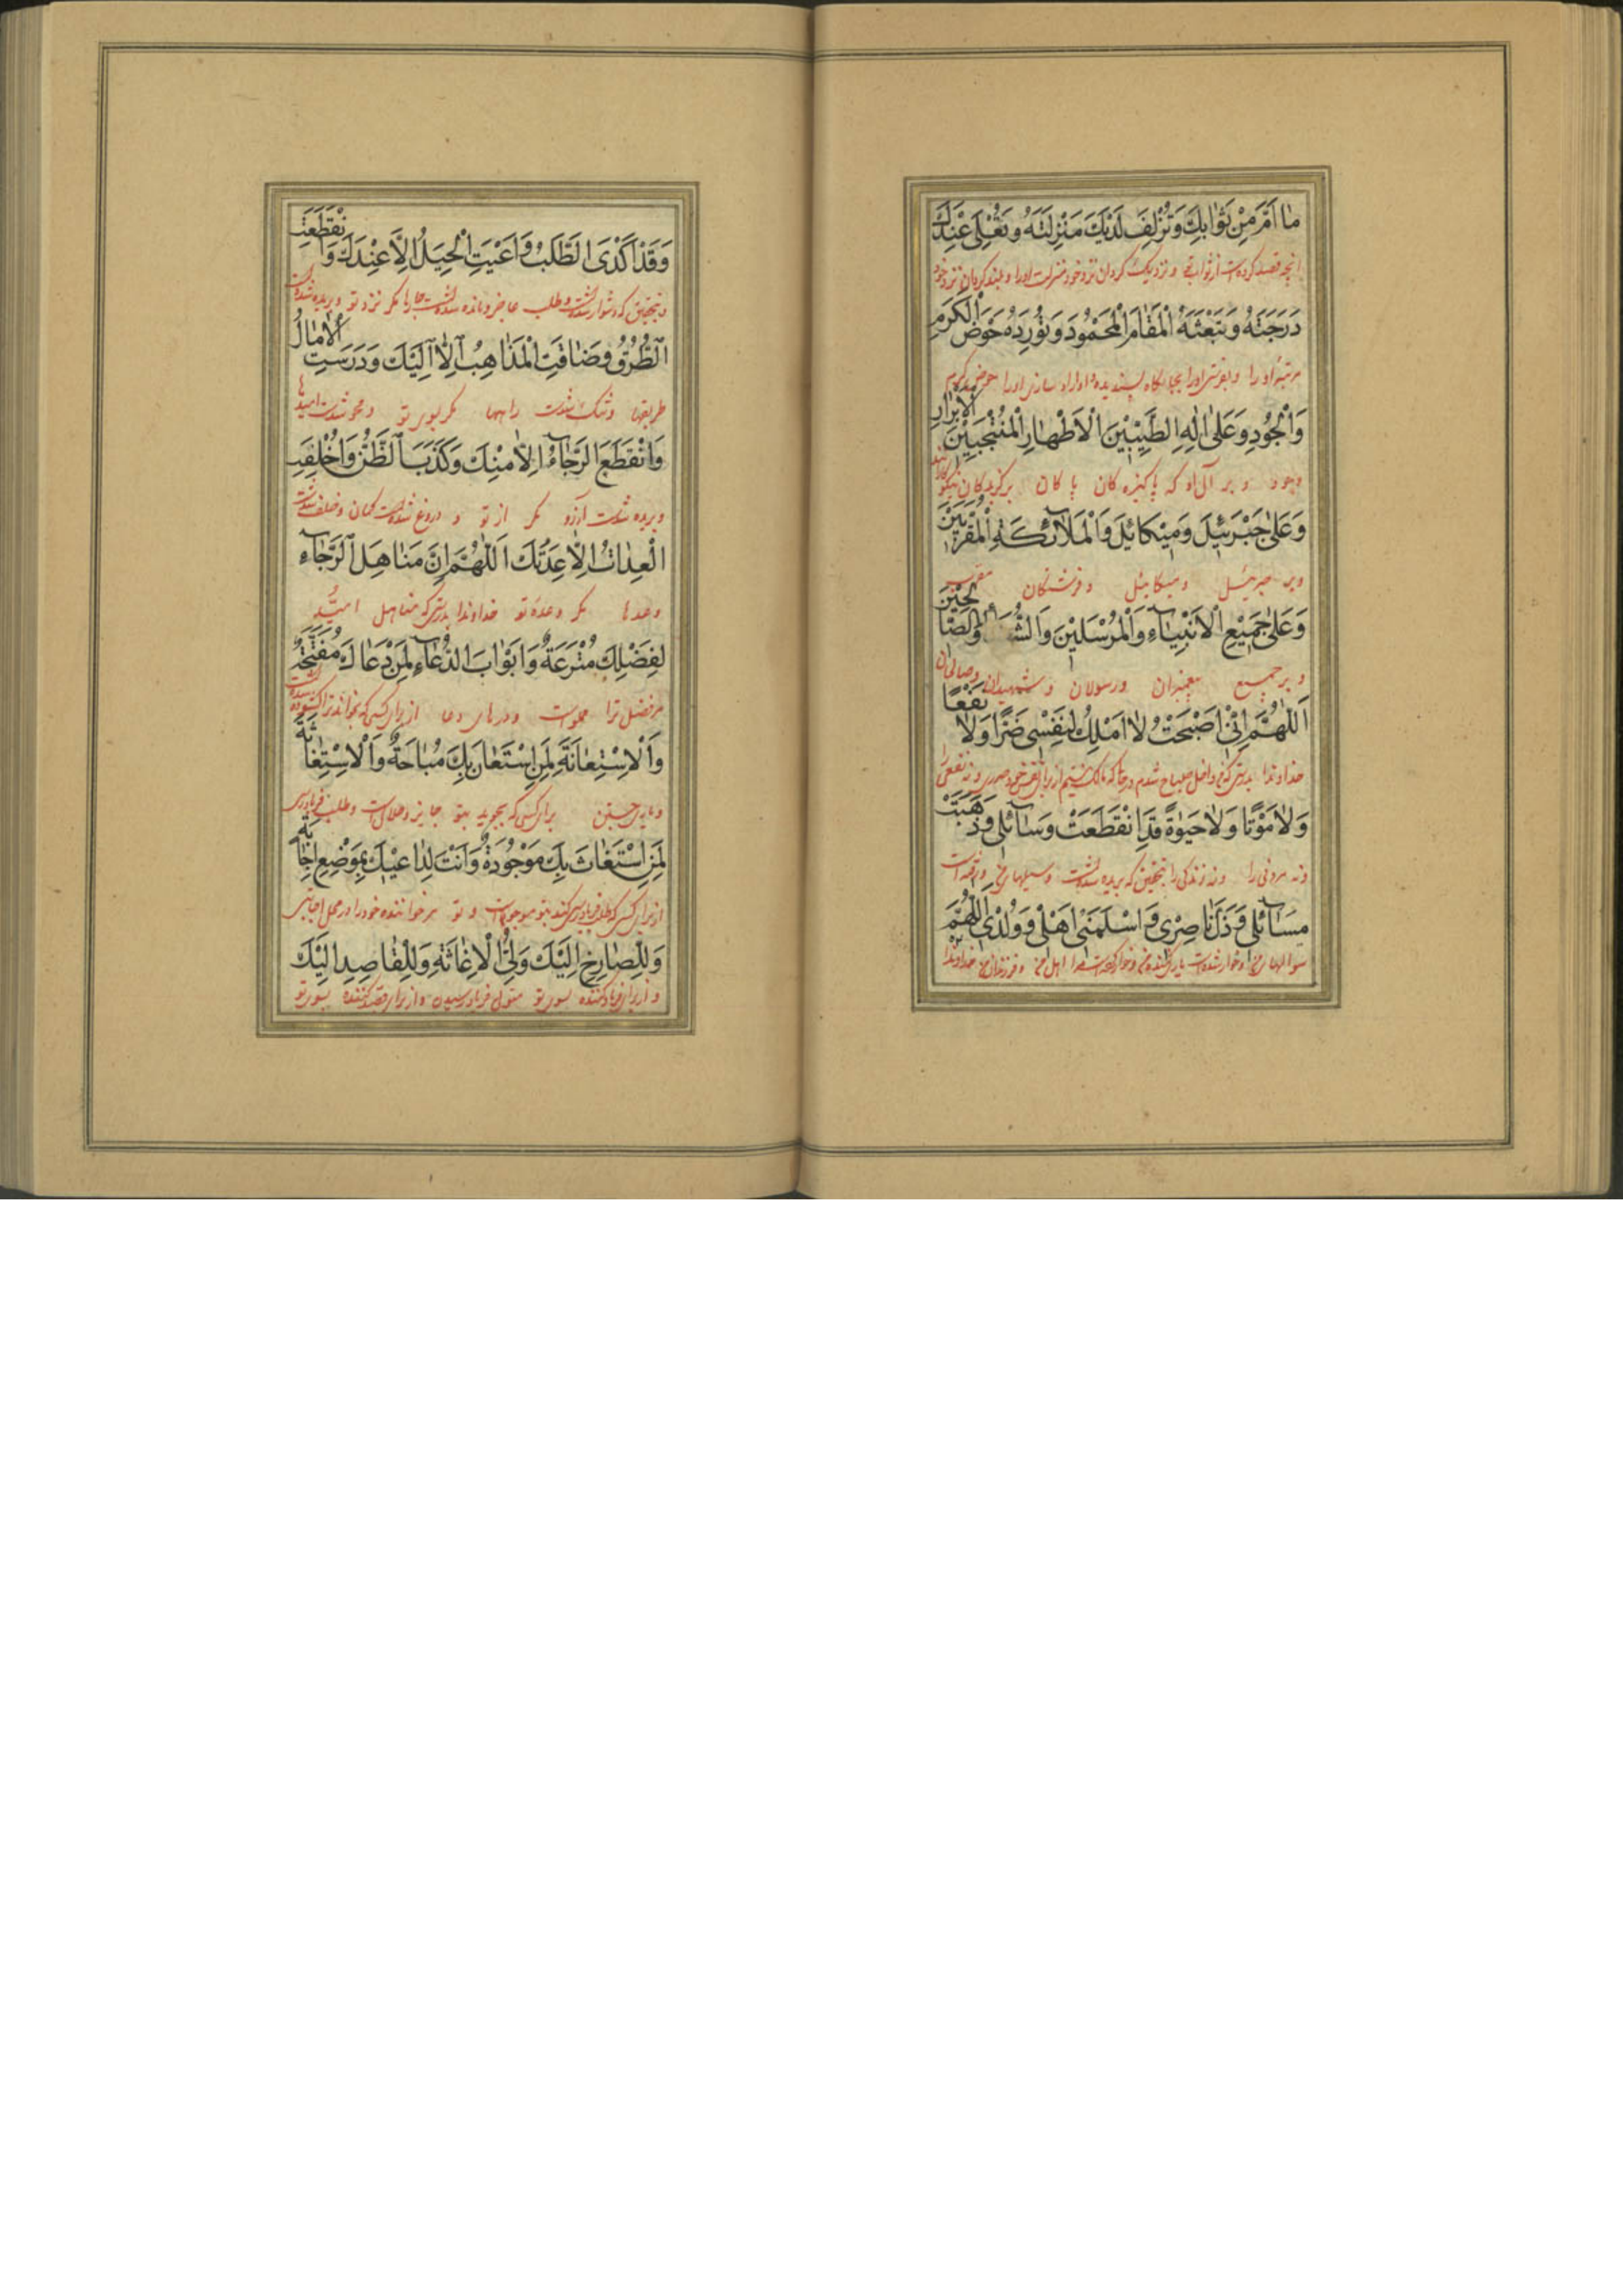 مٰا اَمَّ مِنْ ثَوٰابِكَ وَتُزْلِفَ لَدَيْكَ مَنْزِلَتَهُ وَتُعْلِىَ عِنْدَكَ
انچه قصد کرده است از ثواب تو و نزدیک گردان نزد خود منزلت اورا و بلند گردان نزد خود
دَرَجَتَهُ وَتَبْعَثَهُ الْمَقٰامَ الْمَحْمُودَ وَتُورِدَهُ حَوْضَ الْكَرَمِ
مرتبه اورا و بفرستی اورا بجایگاه پسندیده و وارد سازی اورا حوض کرم
وَالْجُودِ وَعَلىٰ اٰلِهِ الطَّيِّبِيْنَ الْاَطْهٰارِ الْمُنْتَجَبِيْنَ الْاَبْرٰارِ
وجود و بر آل او که پاکیزه کان پا کان برگزیدگان نیکو
وَعَلىٰ جَبْرَئِيْلَ وَمِيْكٰائِيْلَ وَالْمَلٰآئِكَةِ الْمُقَرَّبِيْنَ
وبر جبرئیل ومیکائیل وفرشتگان مقرب
وَعَلىٰ جَمِيْعِ الْاَنْبِيٰآءِ وَالْمُرْسَلِيْنَ وَالصّٰالِحِيْنَ
و بر جمیع پیغمبران ورسولان وشهیدان وصالحان
اَللّٰهُمَّ اِنِّىْ اَصْبَحْتُ لٰا اَمْلِكُ لِنَفْسِى ضَرًّا وَلٰا نَفْعًا
خداوندا بدرستی که من داخل صباح شدم درحالی که مالک نیستم از برای نفس خود ضرری ونه نفعی
وَلٰا مَوْتًا وَلٰا حَيٰوةً قَدِ انْقَطَعَتْ وَسٰآئِلى وَذَهَبَتْ
ونه مردنی را ونه زندگی را بتحقیق که بریده شده است وسیلهای من ورفته است
مَسٰآئِلى وَذَلَّ نٰاصِرى وَاَسْلَمَنى اَهْلى وَوُلْدى اَللّٰهُمَّ
سوالهای من وخوار شده است یاری کننده من مرا اهل من وفرزندان من خداوندا
وَقَدْ اَكْدَى الطَّلَبُ وَاَعْيَتِ الْحِيَلُ اِلَّا عِنْدَكَ وَانْقَطَعَتِ
وبتحقیق که دشوار شده است طلب عاجز ومانده شده است چارها مگر نزد تو وبریده شده است
الطُّرُقُ وَضٰاقَتِ الْمَذٰاهِبُ اِلّٰا اِلَيْكَ وَدَرَسَتِ الْاٰمٰالُ
طریقها وتنک شده است راهها مگر بسوی تو ومحو شده است امیدها
وَانْقَطَعَ الرَّجٰآءُ اِلّٰا مِنْكَ وَكَذَبَ الظَّنُّ وَاُخْلِفَتِ
وبریده شده است آرزو مگر از تو و دروغ شده است گمان وخلف شده است
الْعِدٰاتُ اِلّٰا عِدَتُكَ اَللّٰهُمَّ اِنَّ مَنٰاهِلَ الرَّجٰآءِ
وعدها مگر وعده تو خداوندا بدرستی که مناهل امید
لِفَضْلِكَ مُتْرَعَةٌ وَاَبْوٰابَ الدُّعٰآءِ لِمَنْ دَعٰاكَ مُفَتَّحَةٌ
مر فضل ترا مملوست ودرهای دعا از برای کسی که بخواند ترا گشوده شده است
وَالْاِسْتِعٰانَةَ لِمَنِ اسْتَعٰانَ بِكَ مُبٰاحَةٌ وَالْاِسْتِغٰاثَةَ
ویاری جستن برای کسی که بجوید بتو جایز وحلال است وطلب فریادرسی
لِمَنِ اسْتَغٰاثَ بِكَ مَوْجُودَةٌ وَاَنْتَ لِدٰاعيْكَ بِمَوْضِعِ اِجٰابَةٍ
از برای کسی که طلب فریادرسی کند بتو موجود است و تو مر خواننده خود را در محل اجابتی
وَلِلصّٰارِخِ اِلَيْكَ وَلِىُّ الْاِغٰاثَةِ وَلِلْقٰاصِدِ اِلَيْكَ
و از برای فریاد کننده بسوی تو متولی فریاد رسیدن و از برای قصد کننده بسوی تو